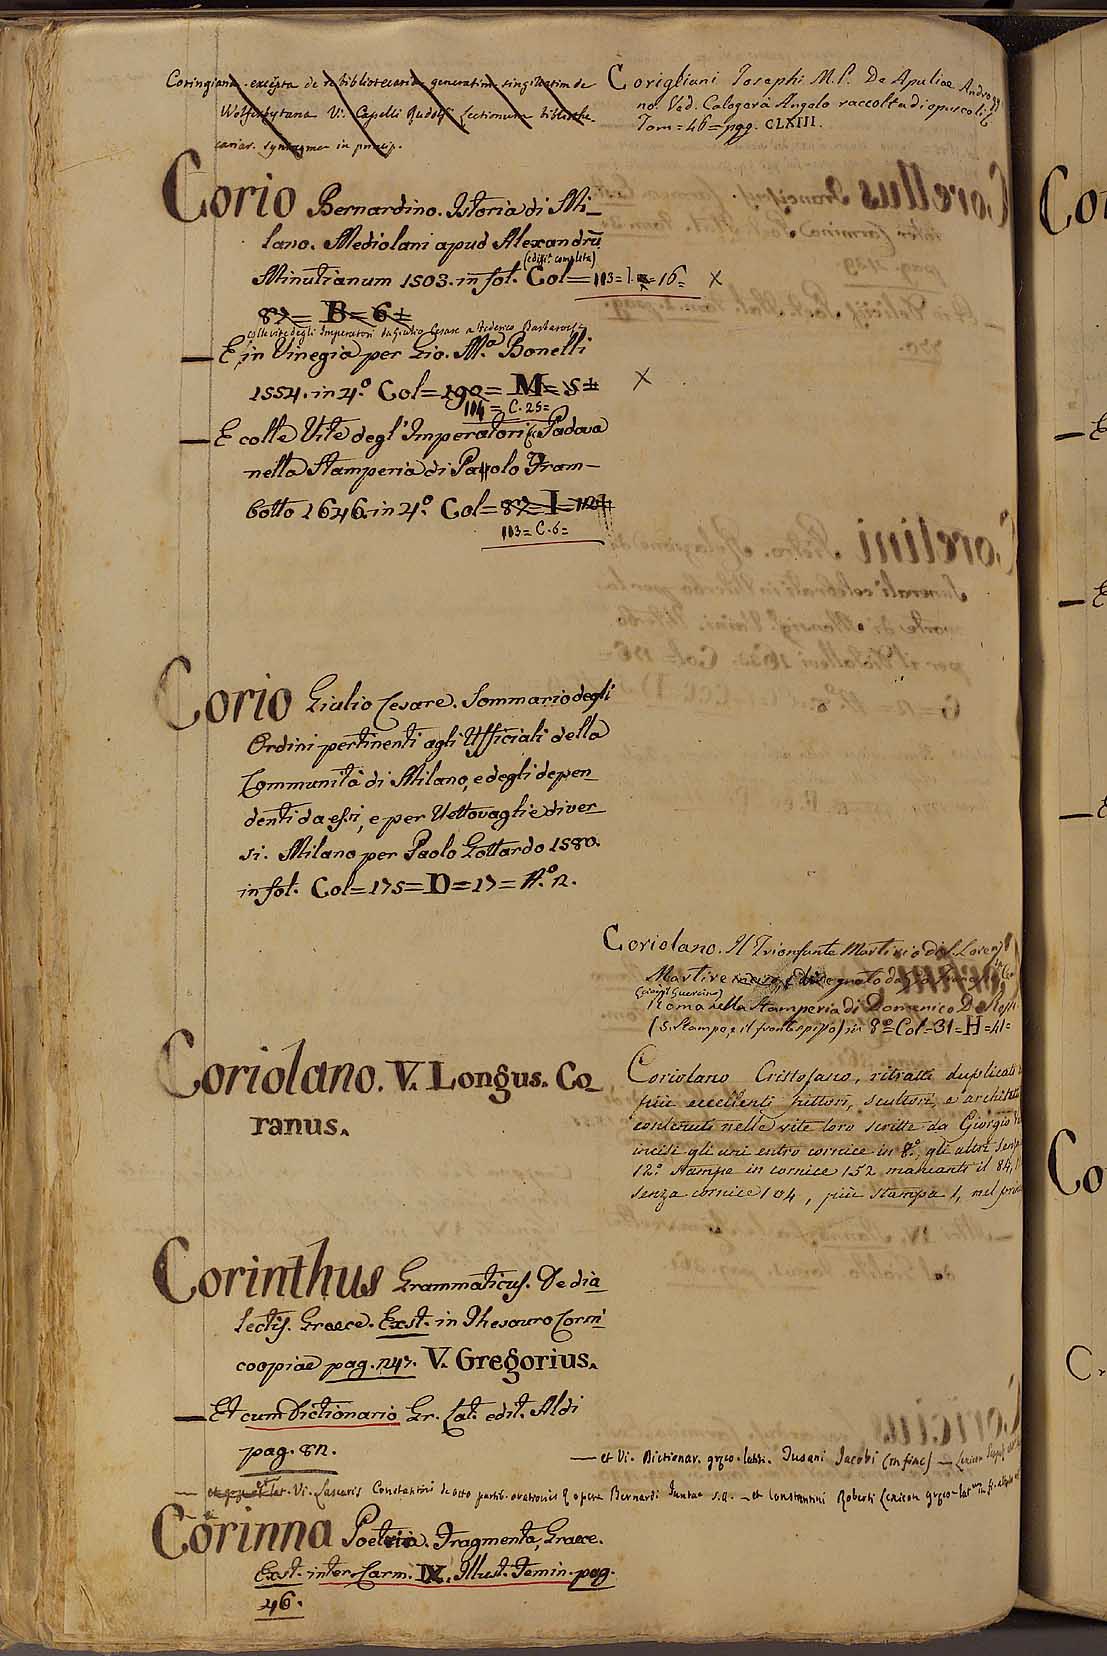 Coringiana excepta de re bibliotecaria generatim singillatim de
Wolferbytana Vi. Capelli Rudolf. Lectionum bibliothe-
cariar. syntagma in princip.
Corigliani Josephi M. P. De Apuliae
no. Ved. Calogerà Angelo raccolta di opuscoli
Tom = 46 = pag. CLXIII.
Corio Bernardino. Istoria di Mi_
lano. Mediolani apud Alexandrū
(ediz.e completa)
Minutianum 1503. in fol. Col = 113 = = 16 = X
87 = B = 6 =
colle vite degli Imperatori da Giulio Cesare a Federico Barbarossa
— E in Vinegia per Gio. M.a Bonelli
1554. in 4.o Col = 190 = M = 5 = X
114 = C. 25 =
— E colle Vite degl'Imperatori. Padova
nella Stamperia di Paolo Fram-
botto 1646. in 4.o Col = 87 = I =
113 = C. 6 =
Corio Giulio Cesare. Sommario degli
Ordini pertinenti agli Ufficiali della
Communità di Milano, e degli depen_
denti da essi, e per Vettovaglie diver_
si. Milano per Paolo Gottardo 1580.
in fol. Col = 175 = D = 17 = N.o 12.
Coriolano. Il Trionfante Martirio di S. Loren
Martire
Roma nella Stamperia di Domenico De Rossi
(5. Stampe, e il frontespizio) in 8.o = Col = 31 = H = 41 =
Coriolano. V. Longus. Co_
ranus.
Coriolano Cristofano, ritratti duplicati
più eccellenti pittori, scultori, e architetti
contenuti nelle vite loro scritte da Giorgio
incisi gli uni entro cornice in 8.o, gli altri senza
12.o stampe in cornice 152 mancanti il 84,
senza cornice 104, più stampa 1, nel
Corinthus Grammaticus. De dia_
lectis. Graece. Exst. in Thesauro Corni_
coopiae pag. 247. V. Gregorius.
— Et cum Dictionario Gr. Lat. edit. Aldi
pag. 82.
— et Vi. Dictionar. græco-latin. Tusani Jacobi (in fine) —
— Vi. Lascaris Constantini de octo partib. orationis & opera Bernardi Juntae s.a. — et Constantini Roberti Lexicon græco-lat.
Corinna Poetria. Fragmenta, Graece.
Exst. inter Carm. IX. Illust. Femin. pag.
46.